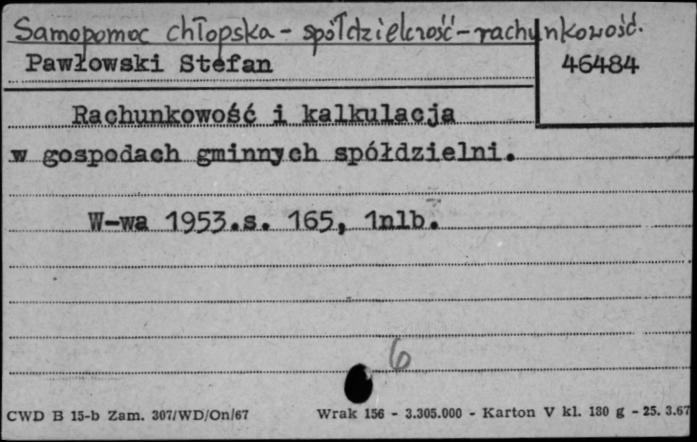 Samopomoc chłopska - spółdzielczość - rachunkowość.
Pawłowski Stefan 46484
Rachunkowość i kalkulacja
w gospodach gminnych spółdzielni.
W-wa 1953.s. 165, 1nlb.
6
CWD B 15-b Zam. 307/WD/On/67 Wrak 156 - 3.305.000 - Karton V kl. 180 g - 25. 3.67